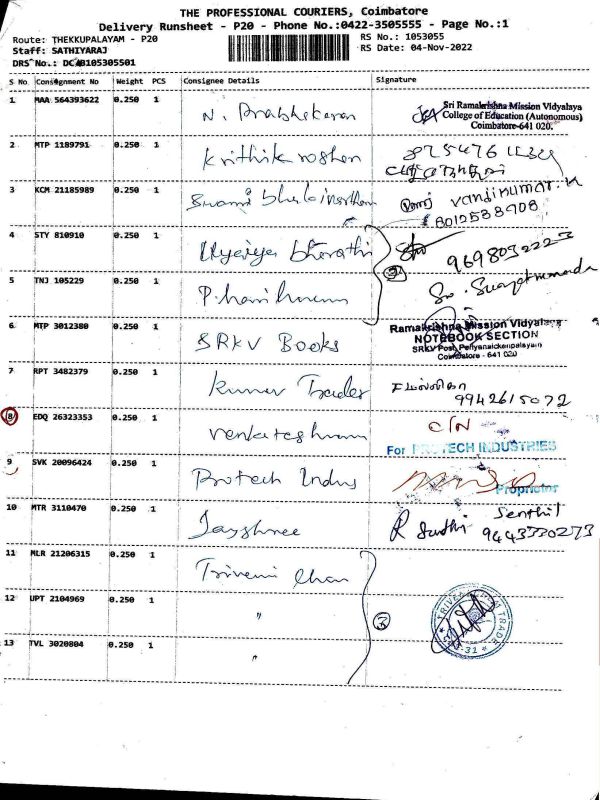 THE PROFESSIONAL COURIERS, Coimbatore
Delivery Runsheet - P20 - Phone No.:0422-3505555 - Page No.:1
Route: THEKKUPALAYAM - P20
RS No.: 1053055
Staff: SATHIYARAJ
RS Date: 04-Nov-2022
DRS No.: DCB105305501
S No. Consignment No Weight PCS Consignee Details Signature
1 MAA 564393622 0.250 1 N. Prabhakaran
Sri Ramakrishna Mission Vidyalaya
College of Education (Autonomous)
Coimbatore-641 020.
2 MTP 1189791 0.250 1 Krithik roshan
3 KCM 21185989 0.250 1 Swami
Vandikumar.K
8012588908
4 STY 810910 0.250 1 bharathi
9698032223
5 TNJ 105229 0.250 1 P.harikumar
2
6 MTP 3012380 0.250 1 SRKV Books
Ramakrishna Mission Vidyalaya
NOTEBOOK SECTION
SRKV Post, Periyanaickenpalayam
Coimbatore - 641 020
7 RPT 3482379 0.250 1 Kumar Trades
9942615072
8 EDQ 26323353 0.250 1 Venkateshwara
C/N
For PROTECH INDUSTRIES
9 SVK 20096424 0.250 1 Protech Indus
Proprietor
10 MTR 3110470 0.250 1 Jayshree
Senthil
9443730273
11 MLR 21206315 0.250 1 Triveni Chan
12 UPT 2104969 0.250 1 "
3
13 TVL 3020804 0.250 1 "